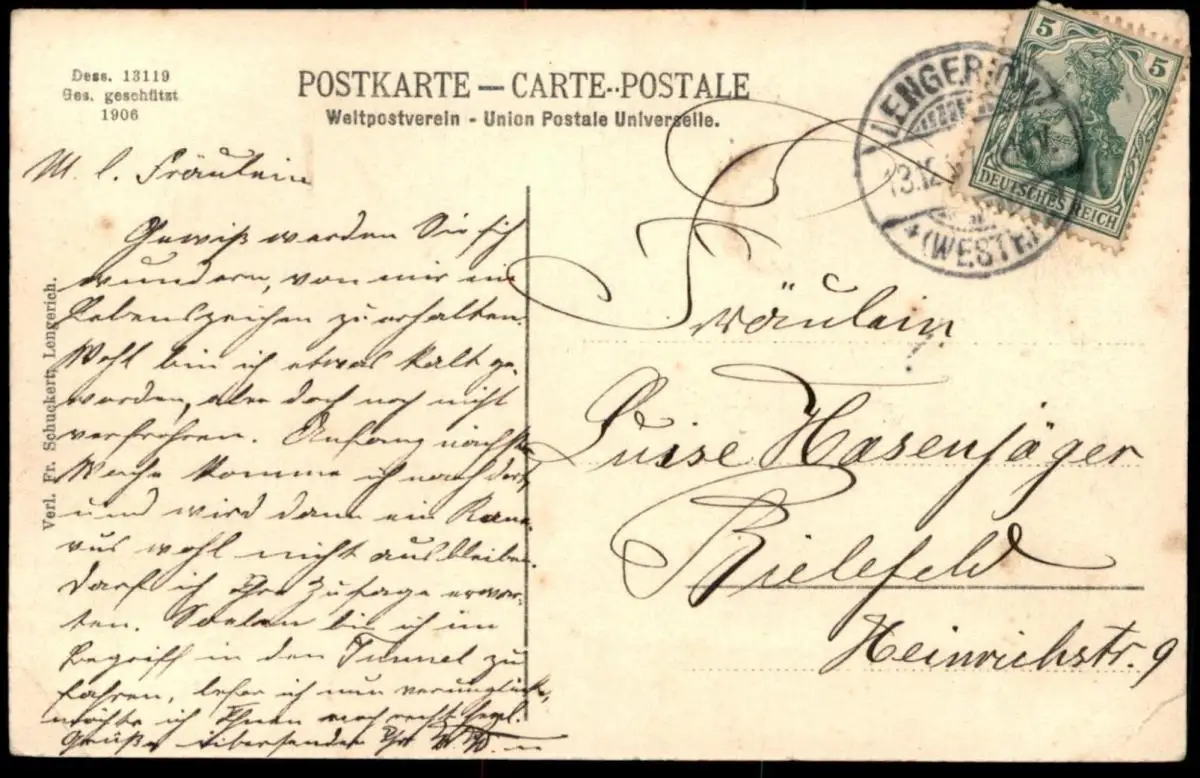 Dess. 13119
Ges. geschützt
1906
POSTKARTE — CARTE-POSTALE
Weltpostverein - Union Postale Universelle.
LENGERICH
13.12.
(WESTF.)
5 5
DEUTSCHES REICH
M. l. Fräulein
Gewiß werden Sie sich
wundern, von mir ein
Lebenszeichen zu erhalten.
Wohl bin ich etwas kalt ge-
worden, aber doch noch nicht
verfrohren. Anfang nächste
Woche komme ich nach dort,
und wird dann ein
wohl nicht ausbleiben.
Darf ich Ihre Zusage erwar-
ten. Soeben bin ich im
Begriff in den Tunnel zu
fahren, ich nun verunglücke,
möchte ich Ihnen noch recht herzl.
Grüße übersenden Ihr
Verl. Fr. Schuckert, Lengerich.
Fräulein
Luise Hasenjäger
Bielefeld
Heinrichstr. 9